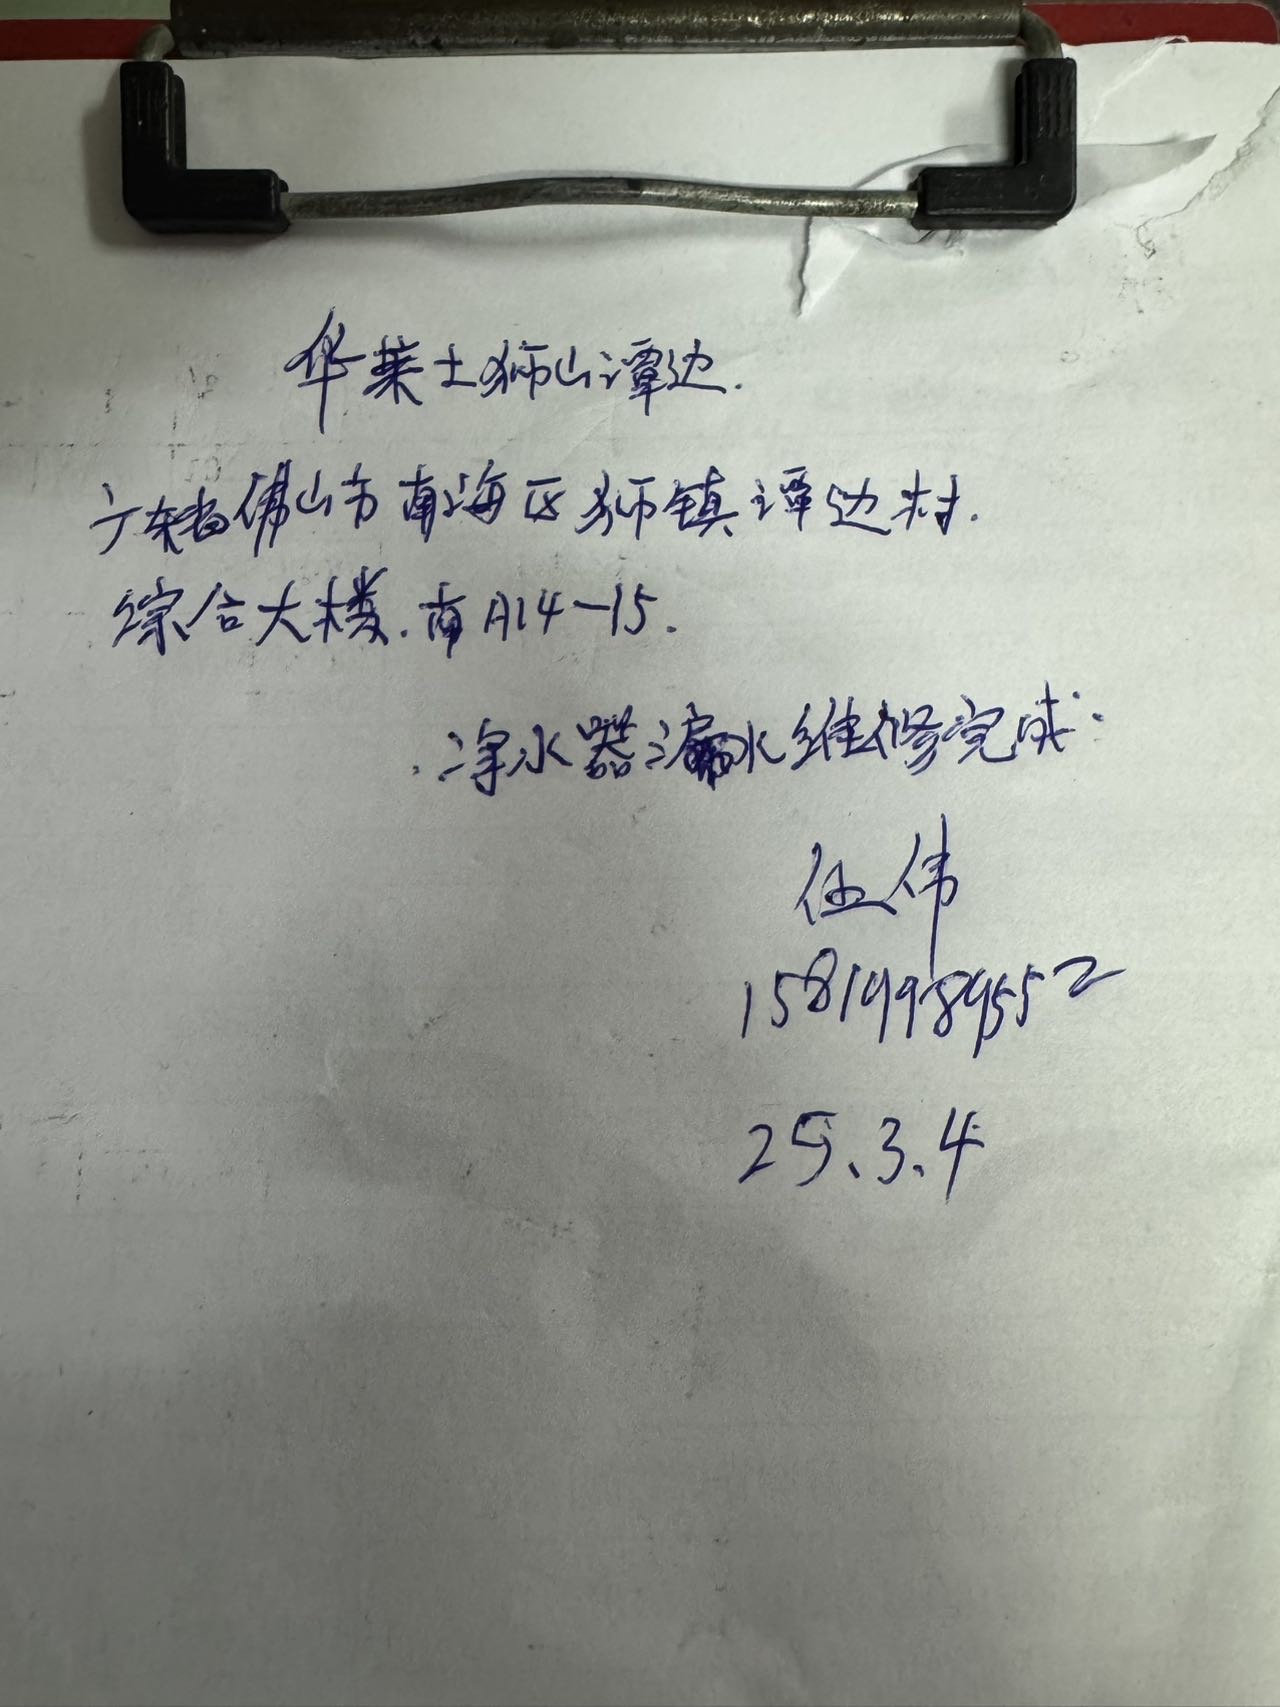 华莱士狮山谭边.
广东省佛山市南海区狮镇谭边村.
综合大楼.南A14-15.
.净水器漏水维修完成.
伍伟
15819989552
25、3、4